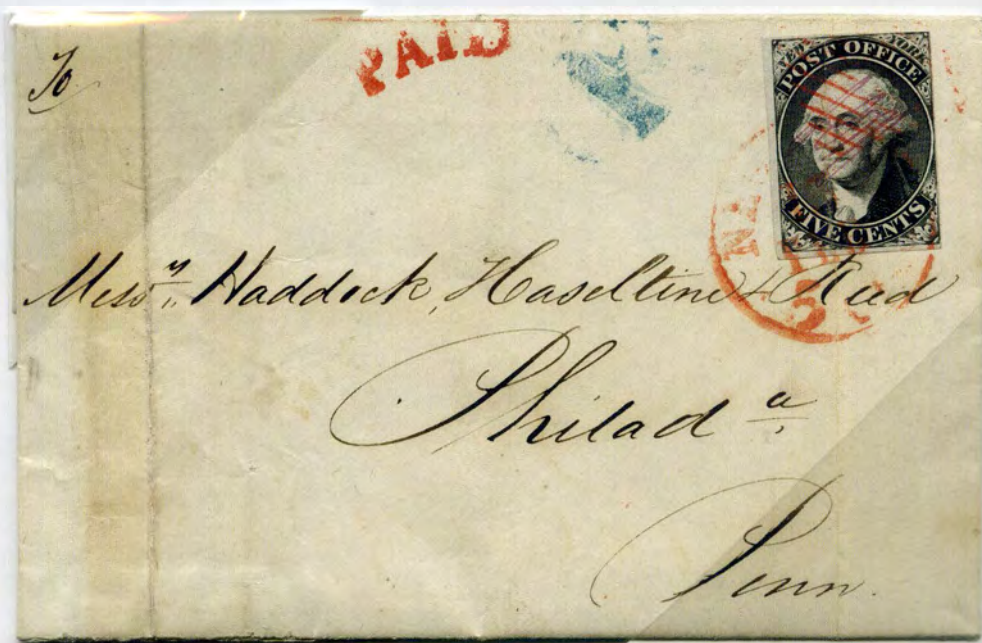 PAID
To
NEW YORK
POST OFFICE
FIVE CENTS
Mess.rs Haddock, Haseltine & Reed
Philad.a
Penn.